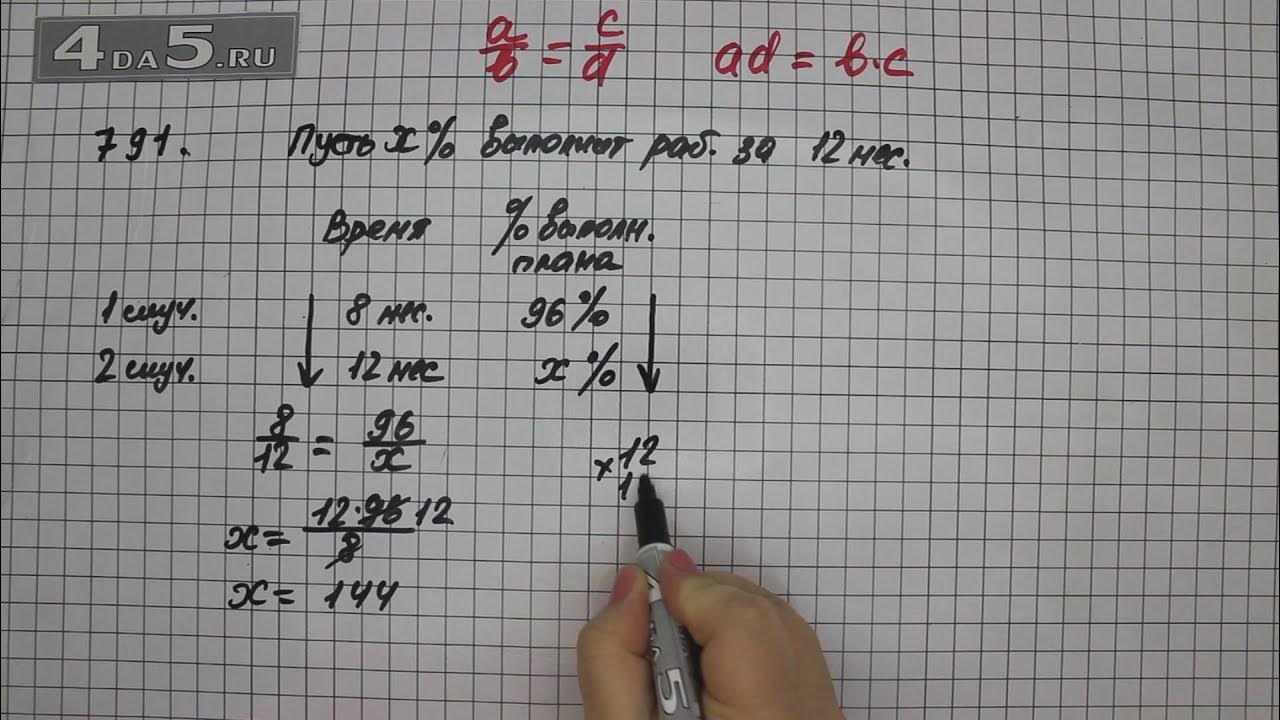 4DA5.RU
a/b = c/d   ad = b·c
791. Пусть x% выполнит раб. за 12 мес.
Время   % выполн. плана
1 случ.   8 мес.   96%
2 случ.   12 мес   x%
8/12 = 96/x
x = 12·96/8   12
x = 144
× 12
1
5